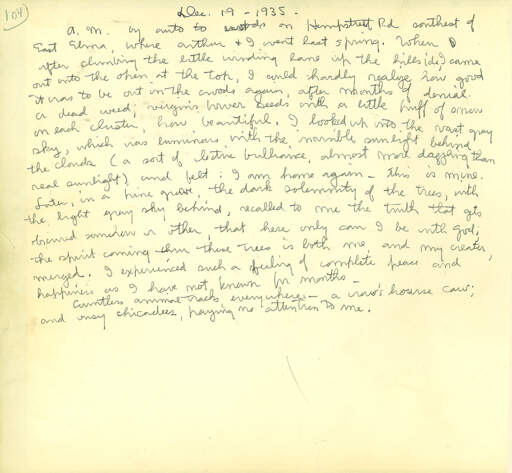 104
Dec. 19 - 1935 -
A.M. by auto to woods on Hempstreet Rd southeast of
East Elma, where Arthur & I went last spring. When I
after climbing the little winding lane up the hillside, came
out into the open at the top, I could hardly realize how good
it was to be out in the woods again, after months of denial.
a dead weed; virgin's bower seeds with a little puff of snow
on each cluster, how beautiful. I looked up into the vast gray
sky, which was luminous with the invisible sunlight behind
the clouds (a sort of brilliance, almost more dazzling than
real sunlight) and felt: I am home again - this is mine.
Later, in a pine grove, the dark solemnity of the trees, with
the light gray sky behind, recalled to me the truth that gets
dimmed somehow or other, that here only can I be with god;
the spirit coming thru these trees is both me, and my creator,
merged. I experienced such a feeling of complete peace and
happiness as I have not known for months -
Countless animal tracks everywhere - a crow's hoarse caw;
and busy chicadees, paying no attention to me.